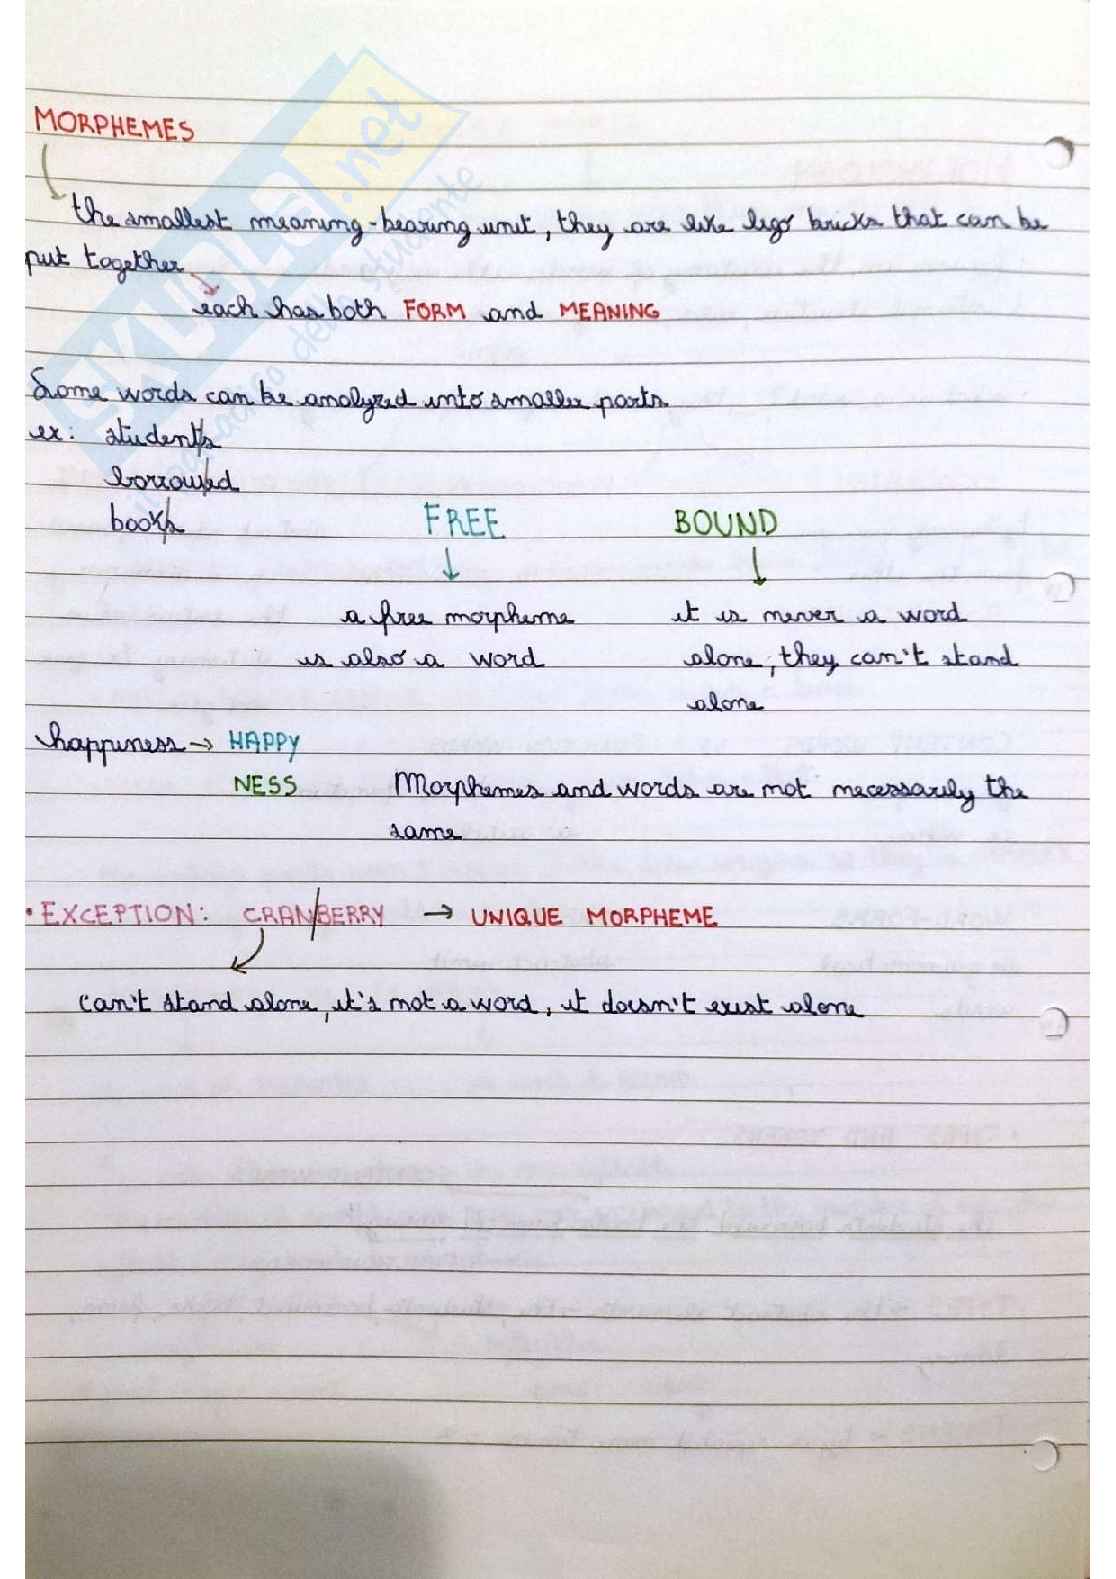 MORPHEMES
the smallest meaning-bearing unit, they are like lego bricks that can be
put together
each has both FORM and MEANING
Some words can be analyzed into smaller parts.
ex: student/s
borrow/ed
book/s
FREE BOUND
a free morpheme it is never a word
is also a word alone, they can't stand
alone
happiness → HAPPY
NESS Morphemes and words are not necessarily the
same
• EXCEPTION: CRAN/BERRY → UNIQUE MORPHEME
can't stand alone, it's not a word, it doesn't exist alone
SKUOLA.net